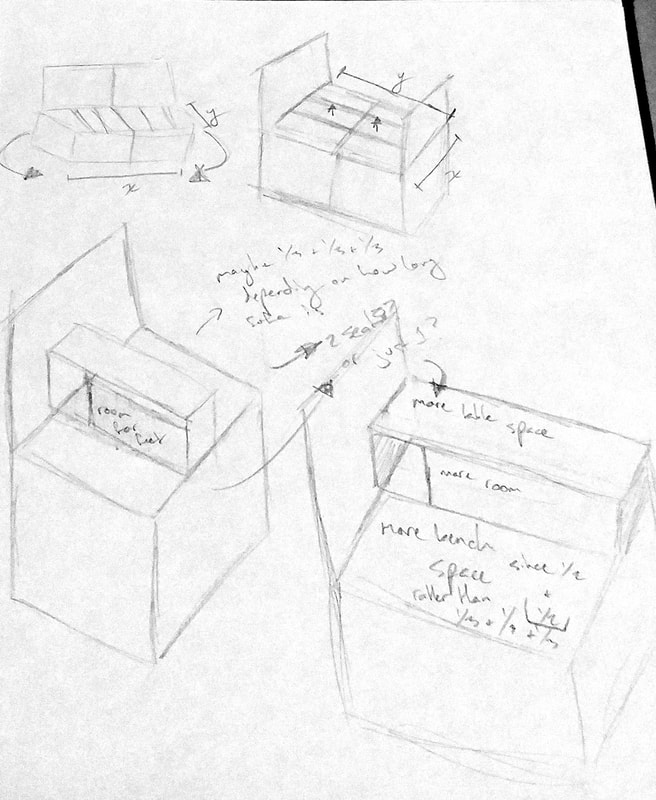 y
x
y
x
maybe 1/3 + 1/3 + 1/3
depending on how long
sofa is
2 seats?
or just 1?
room
for feet
more table space
more room
More bench
space since 1/2
+
rather than 1/2
1/3 + 1/3 + 1/3